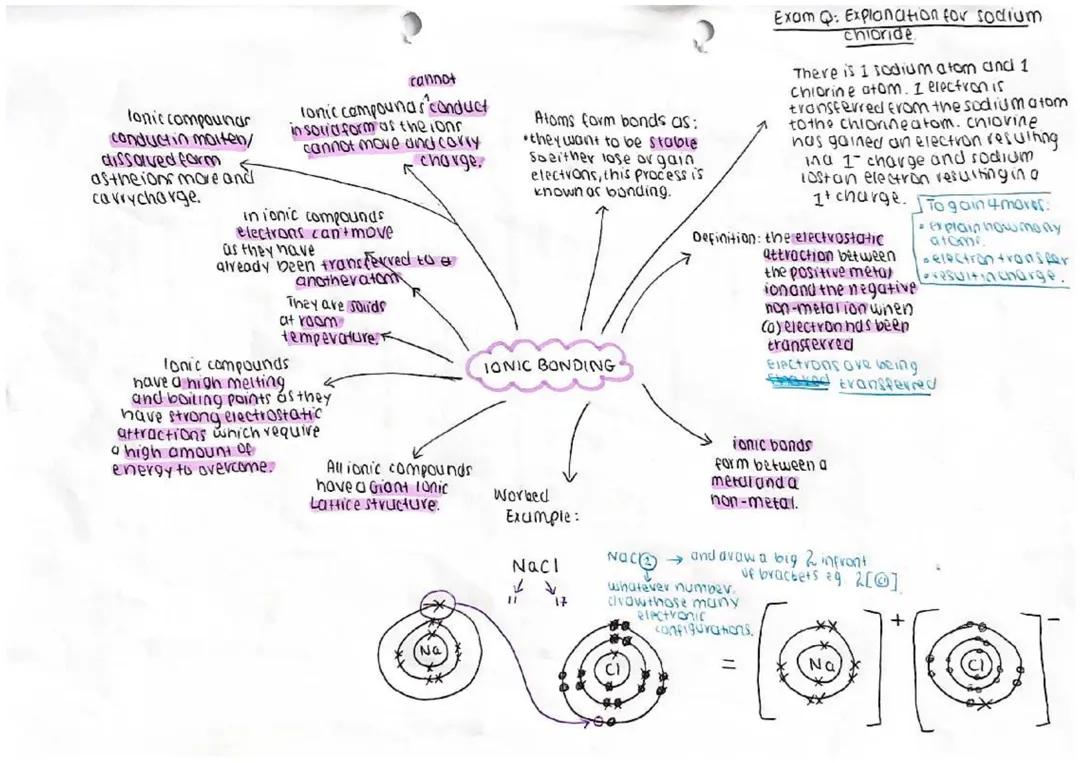 Exam Q: Explanation for sodium
chloride.
There is 1 sodium atom and 1
chlorine atom. 1 electron is
transferred from the sodium atom
to the chlorine atom. chlorine
has gained an electron resulting
in a 1⁻ charge and sodium
lost an electron resulting in a
1⁺ charge.
To gain 4 marks:
• explain how many
atoms.
• electron transfer
• result in charge.
cannot
Ionic compounds ^ conduct
in solid form as the ions
cannot move and carry
charge.
Ionic compounds
conduct in molten/
dissolved form
as the ions move and
carry charge.
Atoms form bonds as:
• they want to be stable
so either lose or gain
electrons, this process is
known as bonding.
in ionic compounds
electrons can't move
as they have
already been transferred to a
another atom
They are solids
at room
temperature.
Definition: the electrostatic
attraction between
the positive metal
ion and the negative
non-metal ion when
(a) electron has been
transferred
Electrons are being
transferred
IONIC BONDING
Ionic compounds
have a high melting
and boiling points as they
have strong electrostatic
attractions which require
a high amount of
energy to overcome.
All ionic compounds
have a Giant Ionic
Lattice structure.
Worked
Example:
ionic bonds
form between a
metal and a
non-metal.
NaCl
11 17
NaCl② → and draw a big 2 infront
of brackets eg 2[Cl]
whatever number,
draw those many
electronic
configurations.
Na
Cl
=
Na
+
Cl
-